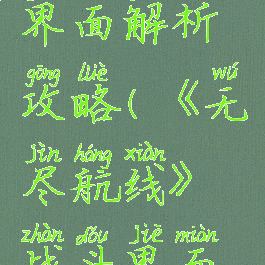 界面解析
gōng lüè wú
攻略(《无
jìn háng xiàn
尽航线》
zhàn dǒu jiè miàn
战斗界面